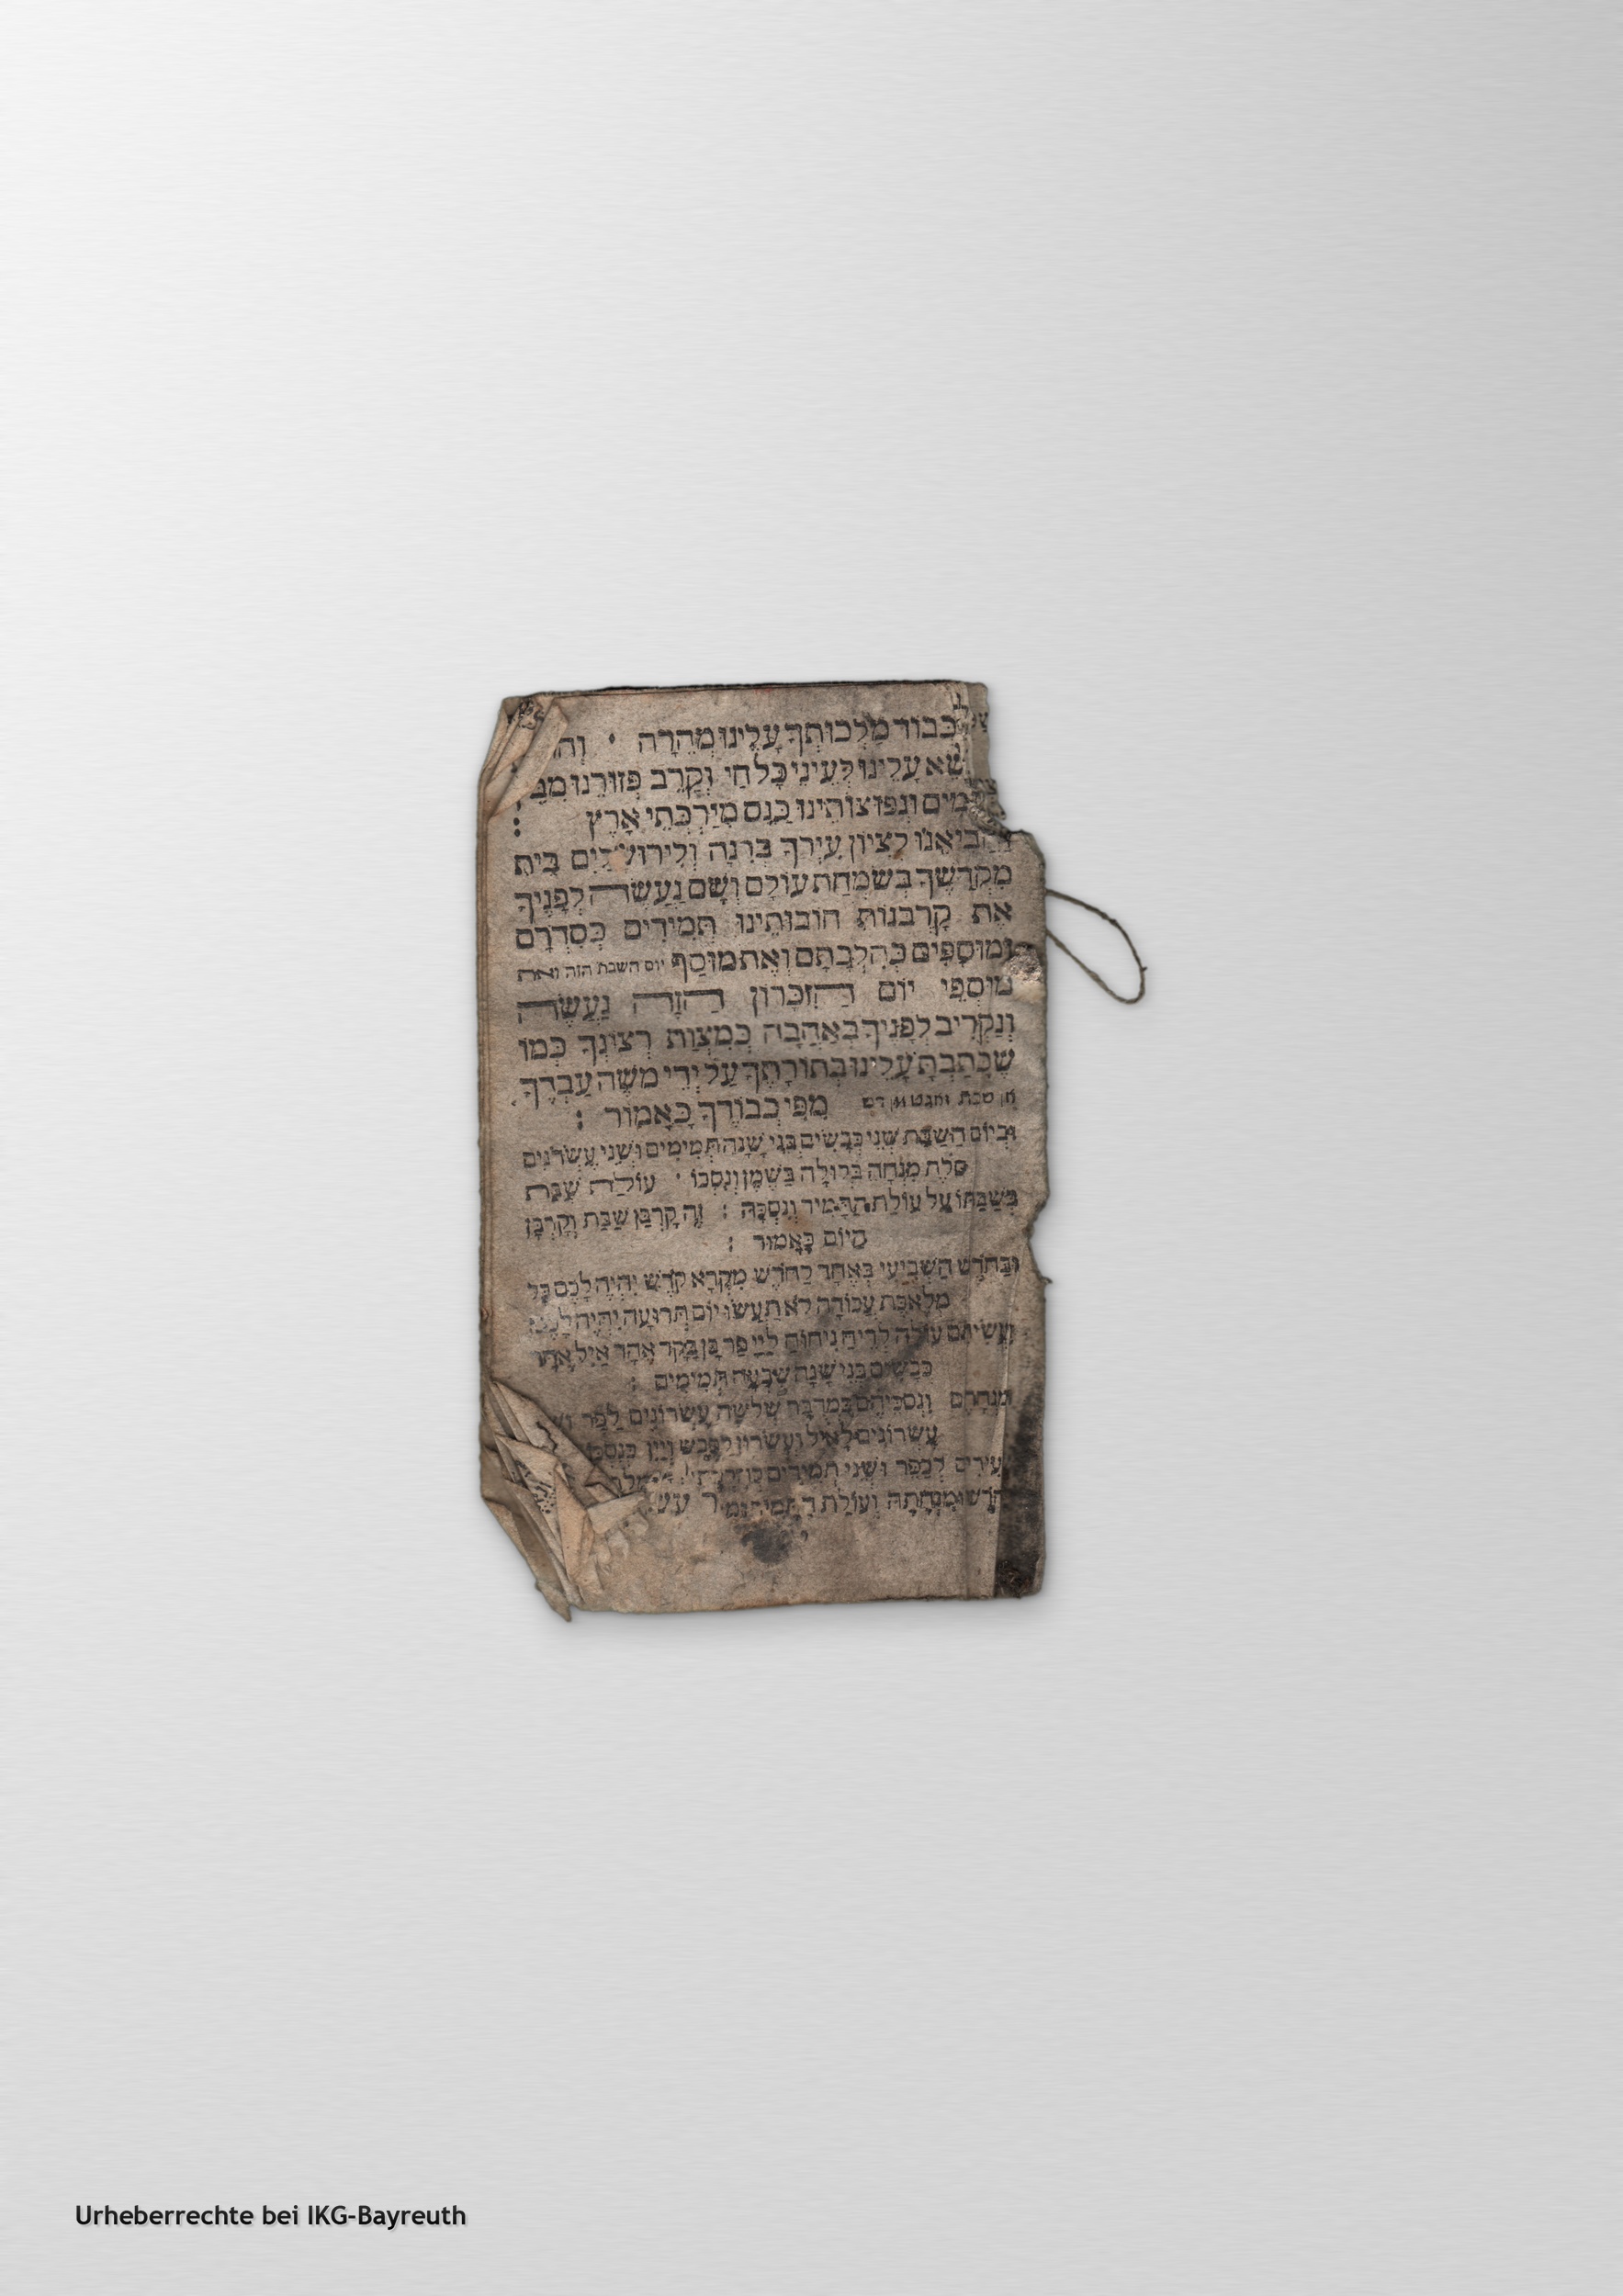 כְּבוֹד מַלְכוּתְךָ עָלֵינוּ מְהֵרָה ׳ וְהו
עָלֵינוּ לְעֵינֵי כָּל חַי וְקָרֵב פְּזוּרֵנוּ מִבֵּ
וּנְפוּצוֹתֵינוּ כַּנֵּס מִיַּרְכְּתֵי אָרֶץ :
וַהֲבִיאֵנוּ לְצִיּוֹן עִירְךָ בְּרִנָּה וְלִירוּשָׁלַיִם בֵּית
מִקְדָּשְׁךָ בְּשִׂמְחַת עוֹלָם וְשָׁם נַעֲשֶׂה לְפָנֶיךָ
אֶת קָרְבְּנוֹת חוֹבוֹתֵינוּ תְּמִידִים כְּסִדְרָם
וּמוּסָפִים כְּהִלְכָתָם וְאֶת מוּסַף יום השבת הזה ואת
מוּסְפֵי יוֹם הַזִּכָּרוֹן הַזֶּה נַעֲשֶׂה
וְנַקְרִיב לְפָנֶיךָ בְּאַהֲבָה כְּמִצְוַת רְצוֹנְךָ כְּמוֹ
שֶׁכָּתַבְתָּ עָלֵינוּ בְּתוֹרָתֶךָ עַל יְדֵי מֹשֶׁה עַבְדֶּךָ
שבת מִפִּי כְבוֹדֶךָ כָּאָמוּר :
וּבְיוֹם הַשַּׁבָּת שְׁנֵי כְבָשִׂים בְּנֵי שָׁנָה תְּמִימִים וּשְׁנֵי עֶשְׂרֹנִים
סֹלֶת מִנְחָה בְּלוּלָה בַשֶּׁמֶן וְנִסְכּוֹ ׳ עוֹלַת שַׁבַּת
בְּשַׁבַּתּוֹ עַל עוֹלַת הַתָּמִיד וְנִסְכָּהּ : זֶה קָרְבַּן שַׁבָּת וְקָרְבַּן
הַיּוֹם כָּאָמוּר :
וּבַחֹדֶשׁ הַשְּׁבִיעִי בְּאֶחָד לַחֹדֶשׁ מִקְרָא קֹדֶשׁ יִהְיֶה לָכֶם כָּל
מְלֶאכֶת עֲבוֹדָה לֹא תַעֲשׂוּ יוֹם תְּרוּעָה יִהְיֶה לָכֶם
וַעֲשִׂיתֶם עוֹלָה לְרֵיחַ נִיחוֹחַ לַיְיָ פַּר בֶּן בָּקָר אֶחָד אַיִל אֶחָד
כְּבָשִׂים בְּנֵי שָׁנָה שִׁבְעָה תְּמִימִים :
וּמִנְחָתָם וְנִסְכֵּיהֶם כַּמְדֻבָּר שְׁלֹשָׁה עֶשְׂרוֹנִים לַפָּר
עֶשְׂרוֹנִים לָאַיִל וְעִשָּׂרוֹן לַכֶּבֶשׂ וְיַיִן כְּנִסְכּוֹ
לְכַפֵּר וּשְׁנֵי תְמִידִים כְּהִלְכָתָם
וּמִנְחָתָהּ וְעוֹלַת הַתָּמִיד
Urheberrechte bei IKG-Bayreuth